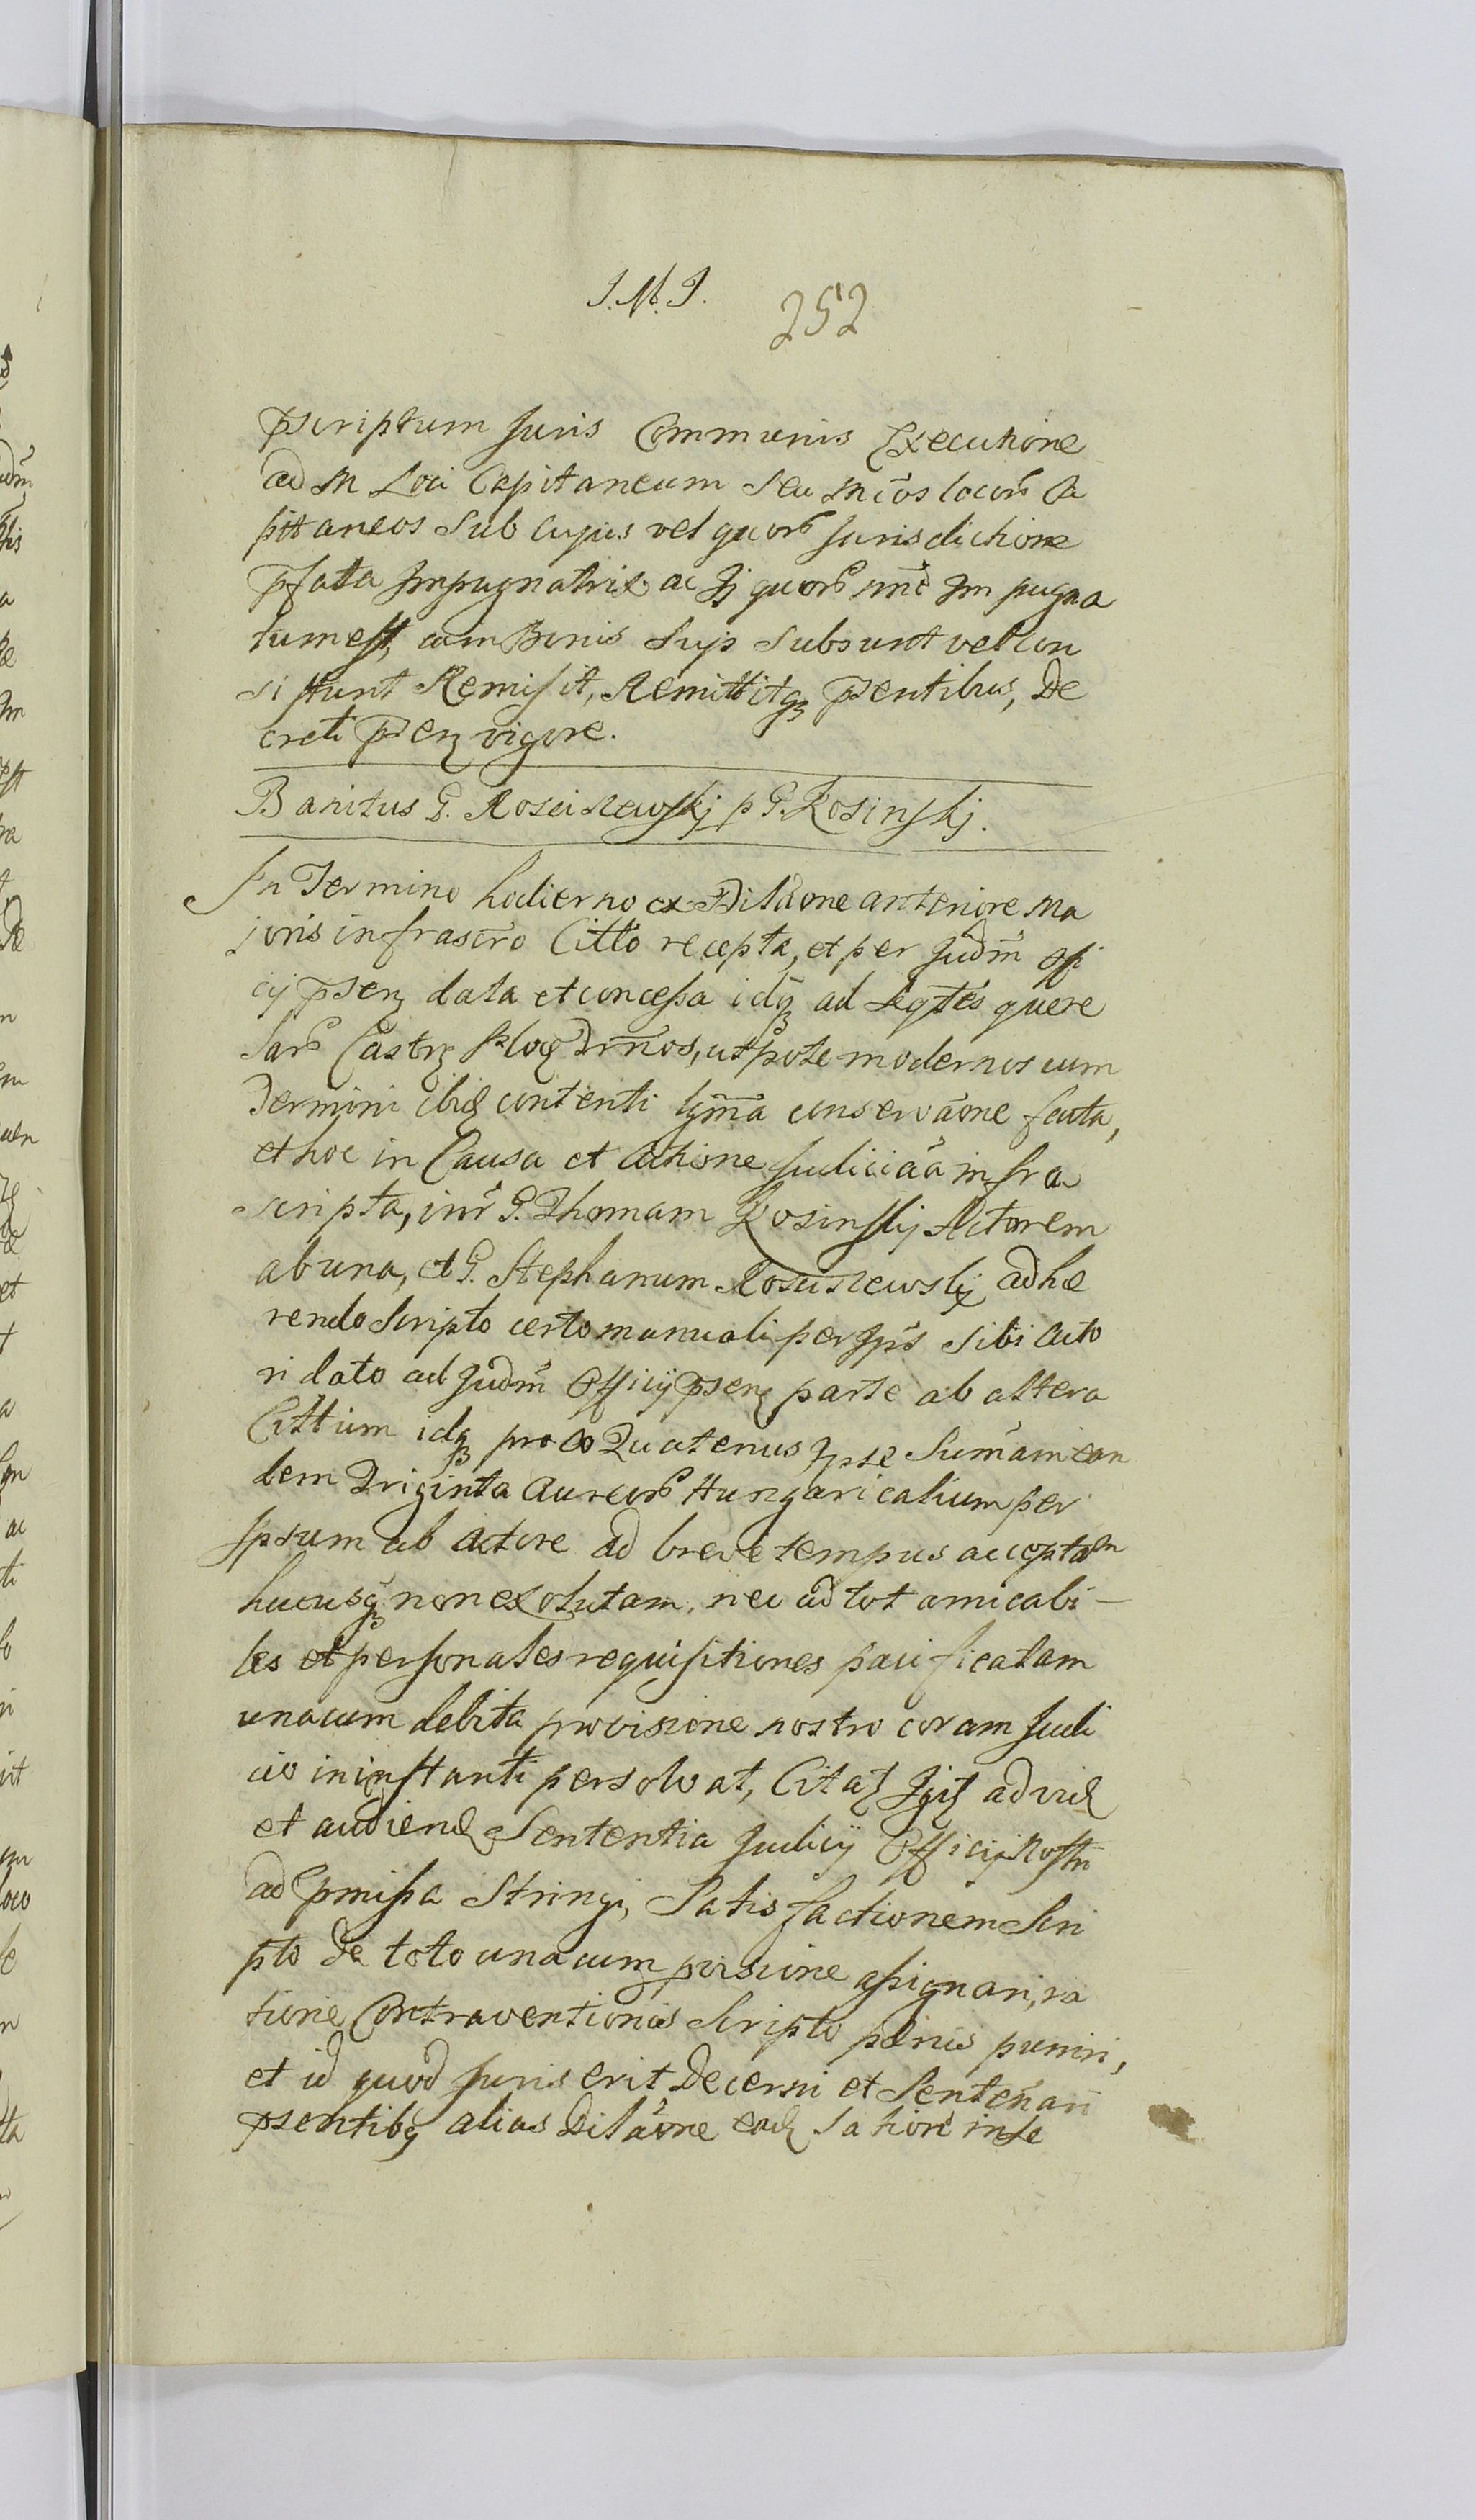 J. M. J.
252
pscriptum Juris Communis Executione
ad M Loci Capitaneum seu Mcos locor Ca
pitaneos sub cujus vel quor Jurisdictione
pfata Impugnatrix ac Ij quor nne Impugna
tum est, cum Bonis suis subsunt vel con
sistunt Remisit, Remittitq pentibus, De
creti psen vigore.
Banitus G. Rosciszewskj p G. Kosinskj.
In Termino hodierno ex Dilaone anteriore Ma
joris infrascro Citto recepta, et per Judm Offi
cij psen data et concessa idq ad sequtes quere
lar Castr Ploc Trnos, utpote modernos cum
Termini ibid contenti lgma conservaone facta,
et hoc in Causa et Actione Judiciaa infra
scripta, intr G. Thomam Kosinskij Actorem
ab una, et G. Stephanum Rosciszewskij adhæ
rendo Scripto certo manuali per Ips sibi acto
ri dato ad Judm Officij psen parte ab altera
Cittum idq pro eo Quatenus Ipse Sumam ean
dem Triginta Aureor Hungaricalium per
Ipsum ab Actore ad breve tempus acceptam
hucusq non exolutam, nec ad tot amicabi-
les et personales requisitiones pacificatam
unacum debita provisione nostro coram Judi
cio in instanti persolvat, Citat Igit ad vid
et audiend Sententia Judicij Officij Nostri
ad pmissa Stringi, Satisfactionem Scri
pto de toto unacum pvisione assignari, ra
tione Contraventionis Scripto pænis puniri,
et id quod Juris erit Decerni et Sentenari
psentibq alias Dilaone ead sationi inse